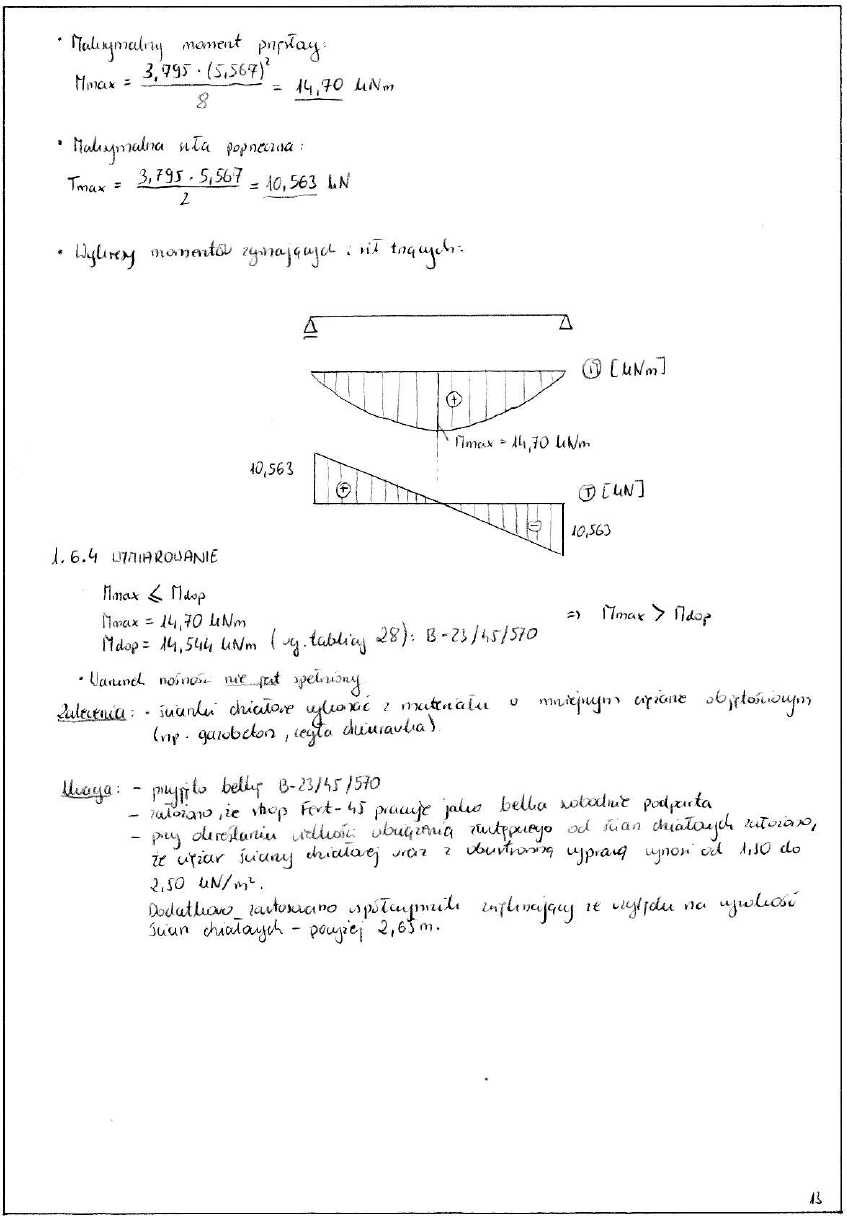 • Maksymalny moment przęsłowy:
Mmax = 3,795 · (5,567)² / 8 = 14,70 kNm
• Maksymalna siła poprzeczna:
Tmax = 3,795 · 5,567 / 2 = 10,563 kN
• Wykresy momentów zginających i sił tnących:
M [kNm]
+
Mmax = 14,70 kNm
10,563
+
T [kN]
−
10,563
1.6.4 WYMIAROWANIE
Mmax ≤ Mdop
Mmax = 14,70 kNm
Mdop = 14,544 kNm (wg. tablicy 28): B-23/45/570
=> Mmax > Mdop
• Warunek nośności nie jest spełniony
Zalecenia: - ścianki działowe wykonać z materiału o mniejszym ciężarze objętościowym
(np. gazobeton, cegła dziurawka).
Uwaga: - przyjęto belkę B-23/45/570
- założono, że strop Fert-45 pracuje jako belka swobodnie podparta
- przy określaniu wielkości obciążenia zastępczego od ścian działowych założono,
że ciężar ściany działowej wraz z obustronną wyprawą wynosi od 1,50 do
2,50 kN/m².
Dodatkowo zastosowano współczynnik zwiększający ze względu na wysokość
ścian działowych - powyżej 2,65 m.
13